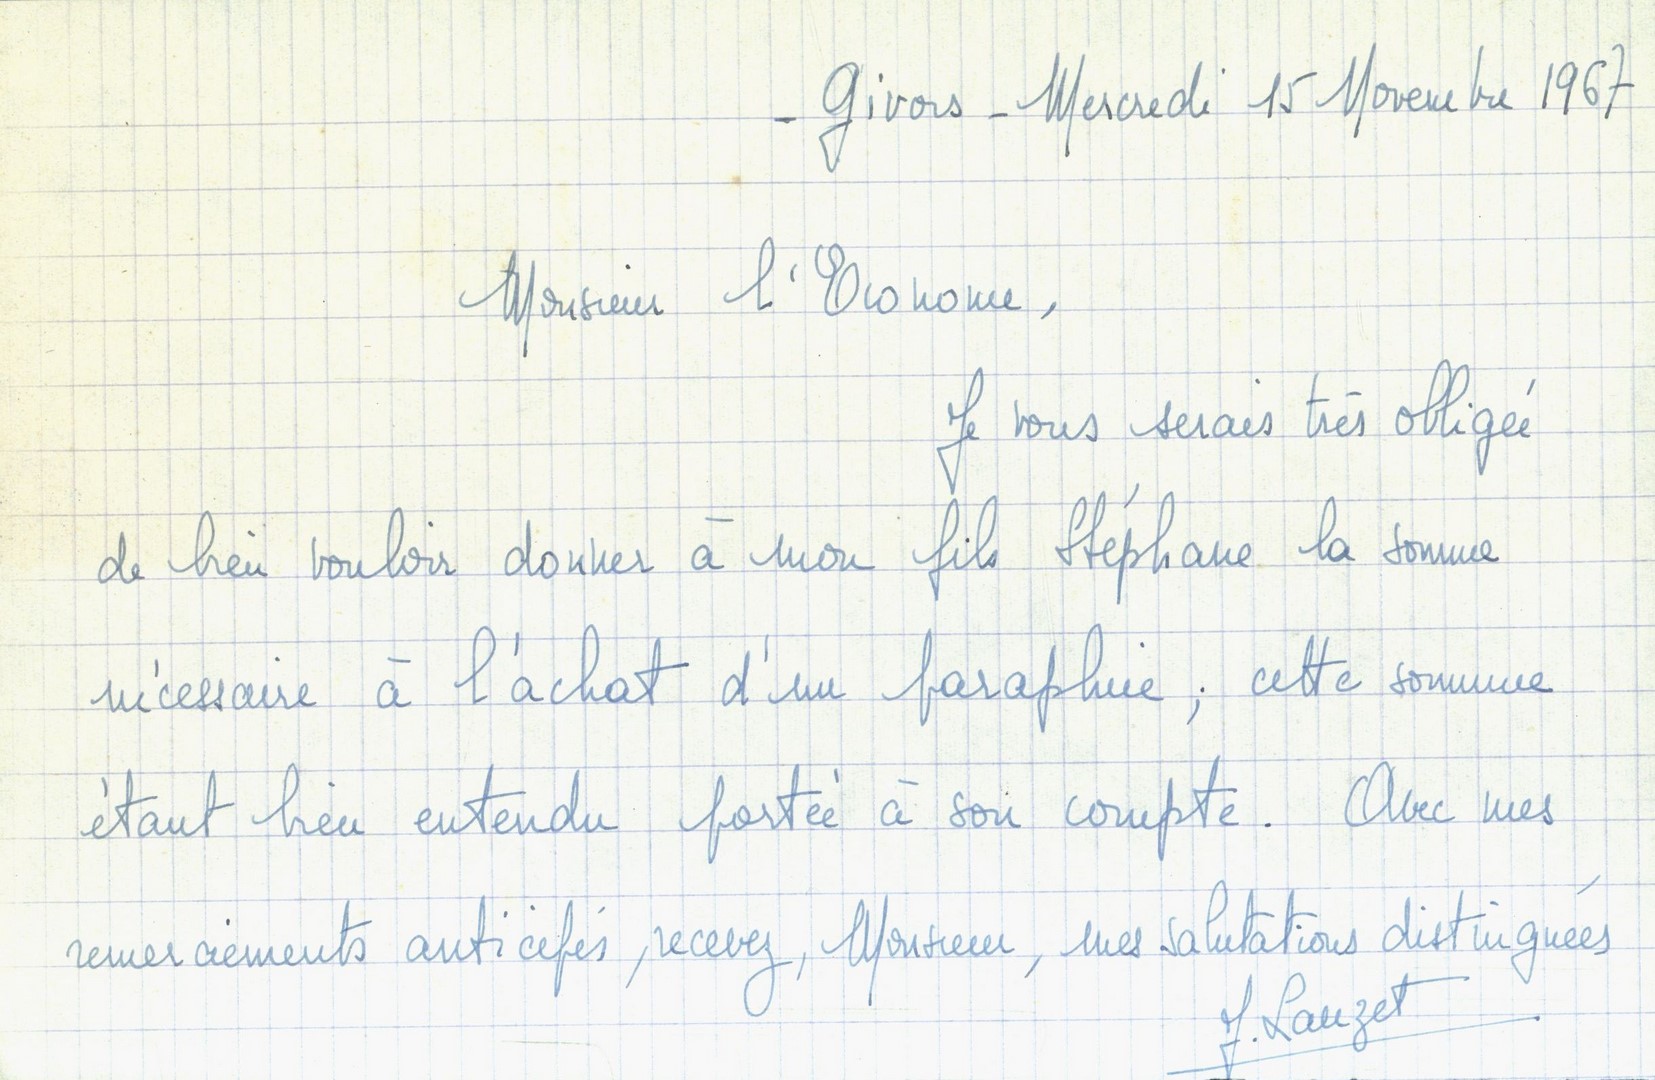 - Givors - Mercredi 15 Novembre 1967
Monsieur l'Econome,
Je vous serais très obligée
de bien vouloir donner à mon fils Stéphane la somme
nécessaire à l'achat d'un parapluie ; cette somme
étant bien entendu portée à son compte. Avec mes
remerciements anticipés, recevez, Monsieur, mes salutations distinguées
J. Lauzet